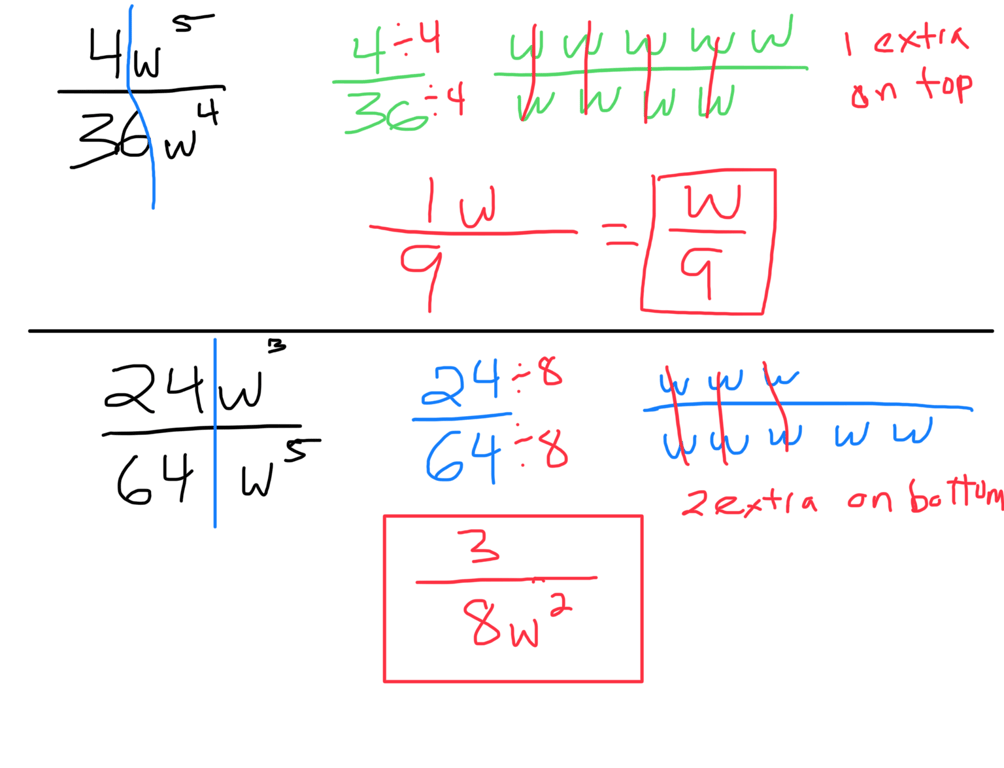 4w⁵
36w⁴
4÷4
36÷4
w w w w w
w w w w
1 extra
on top
1w
9
=
w
9
24w³
64w⁵
24÷8
64÷8
w w w
w w w w w
2 extra on bottom
3
8w²